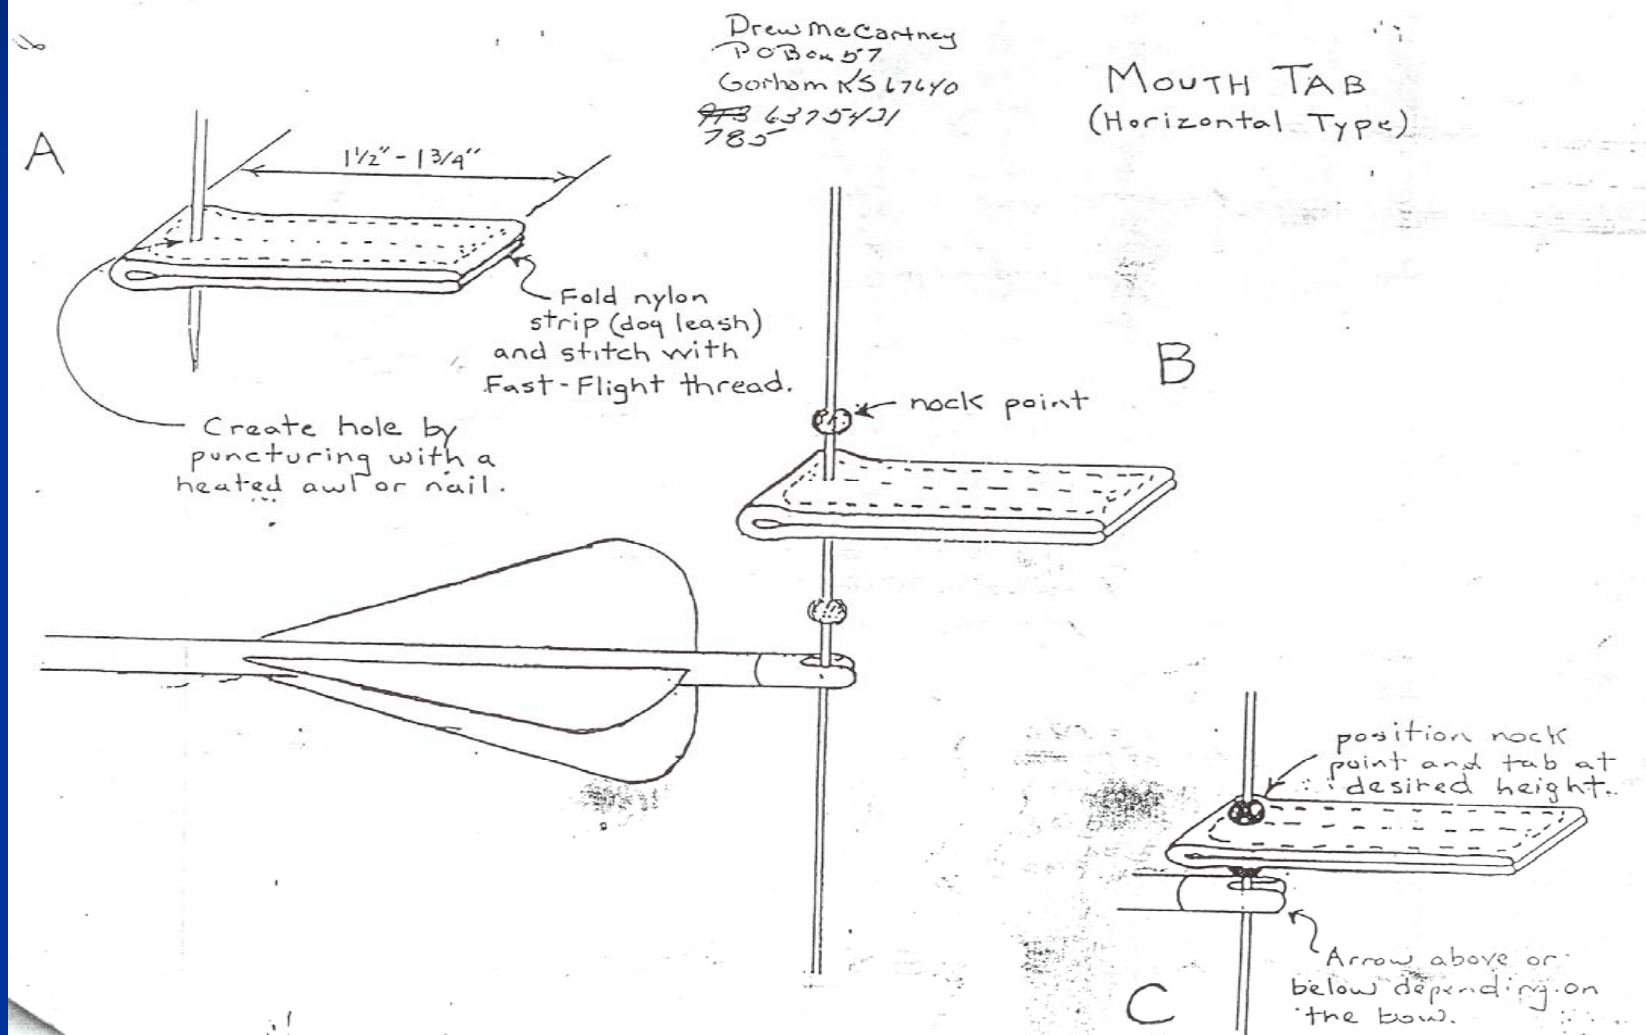 Drew McCartney
P O Box 57
Gorham KS 67640
913 6375421
785
MOUTH TAB
(Horizontal Type)
A
1 1/2" - 1 3/4"
Fold nylon
strip (dog leash)
and stitch with
Fast-Flight thread.
Create hole by
puncturing with a
heated awl or nail.
B
nock point
position nock
point and tab at
desired height.
Arrow above or
below depending on
the bow.
C